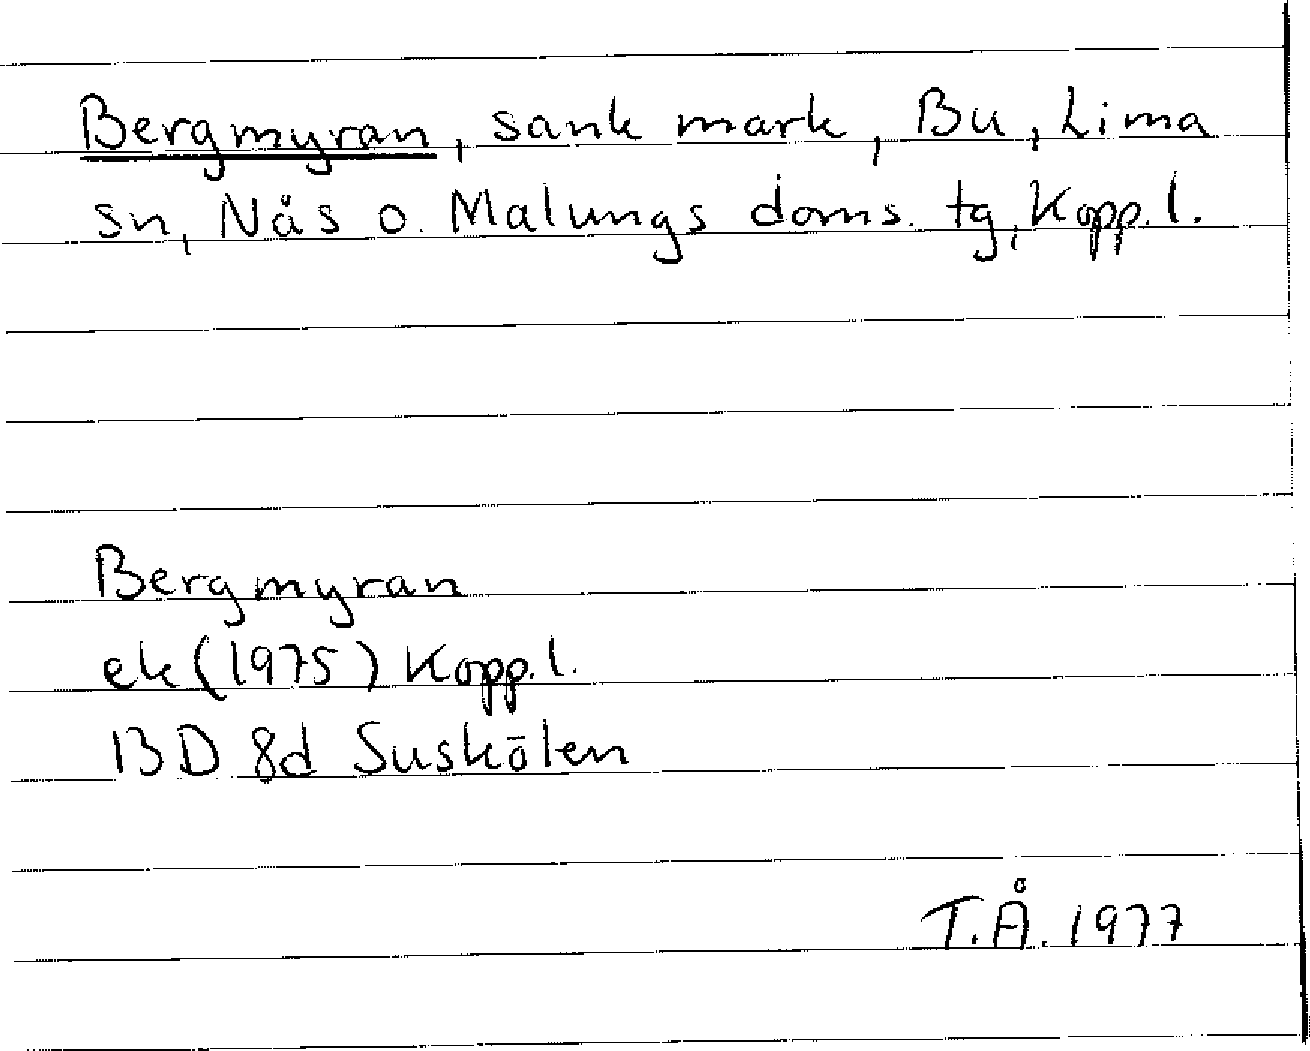 Bergmyran, sank mark, Bu, Lima
sn, Nås o. Malungs doms. tg, Kopp. l.
Bergmyran
ek (1975) Kopp. l.
13 D 8d Suskölen
T.Å. 1977